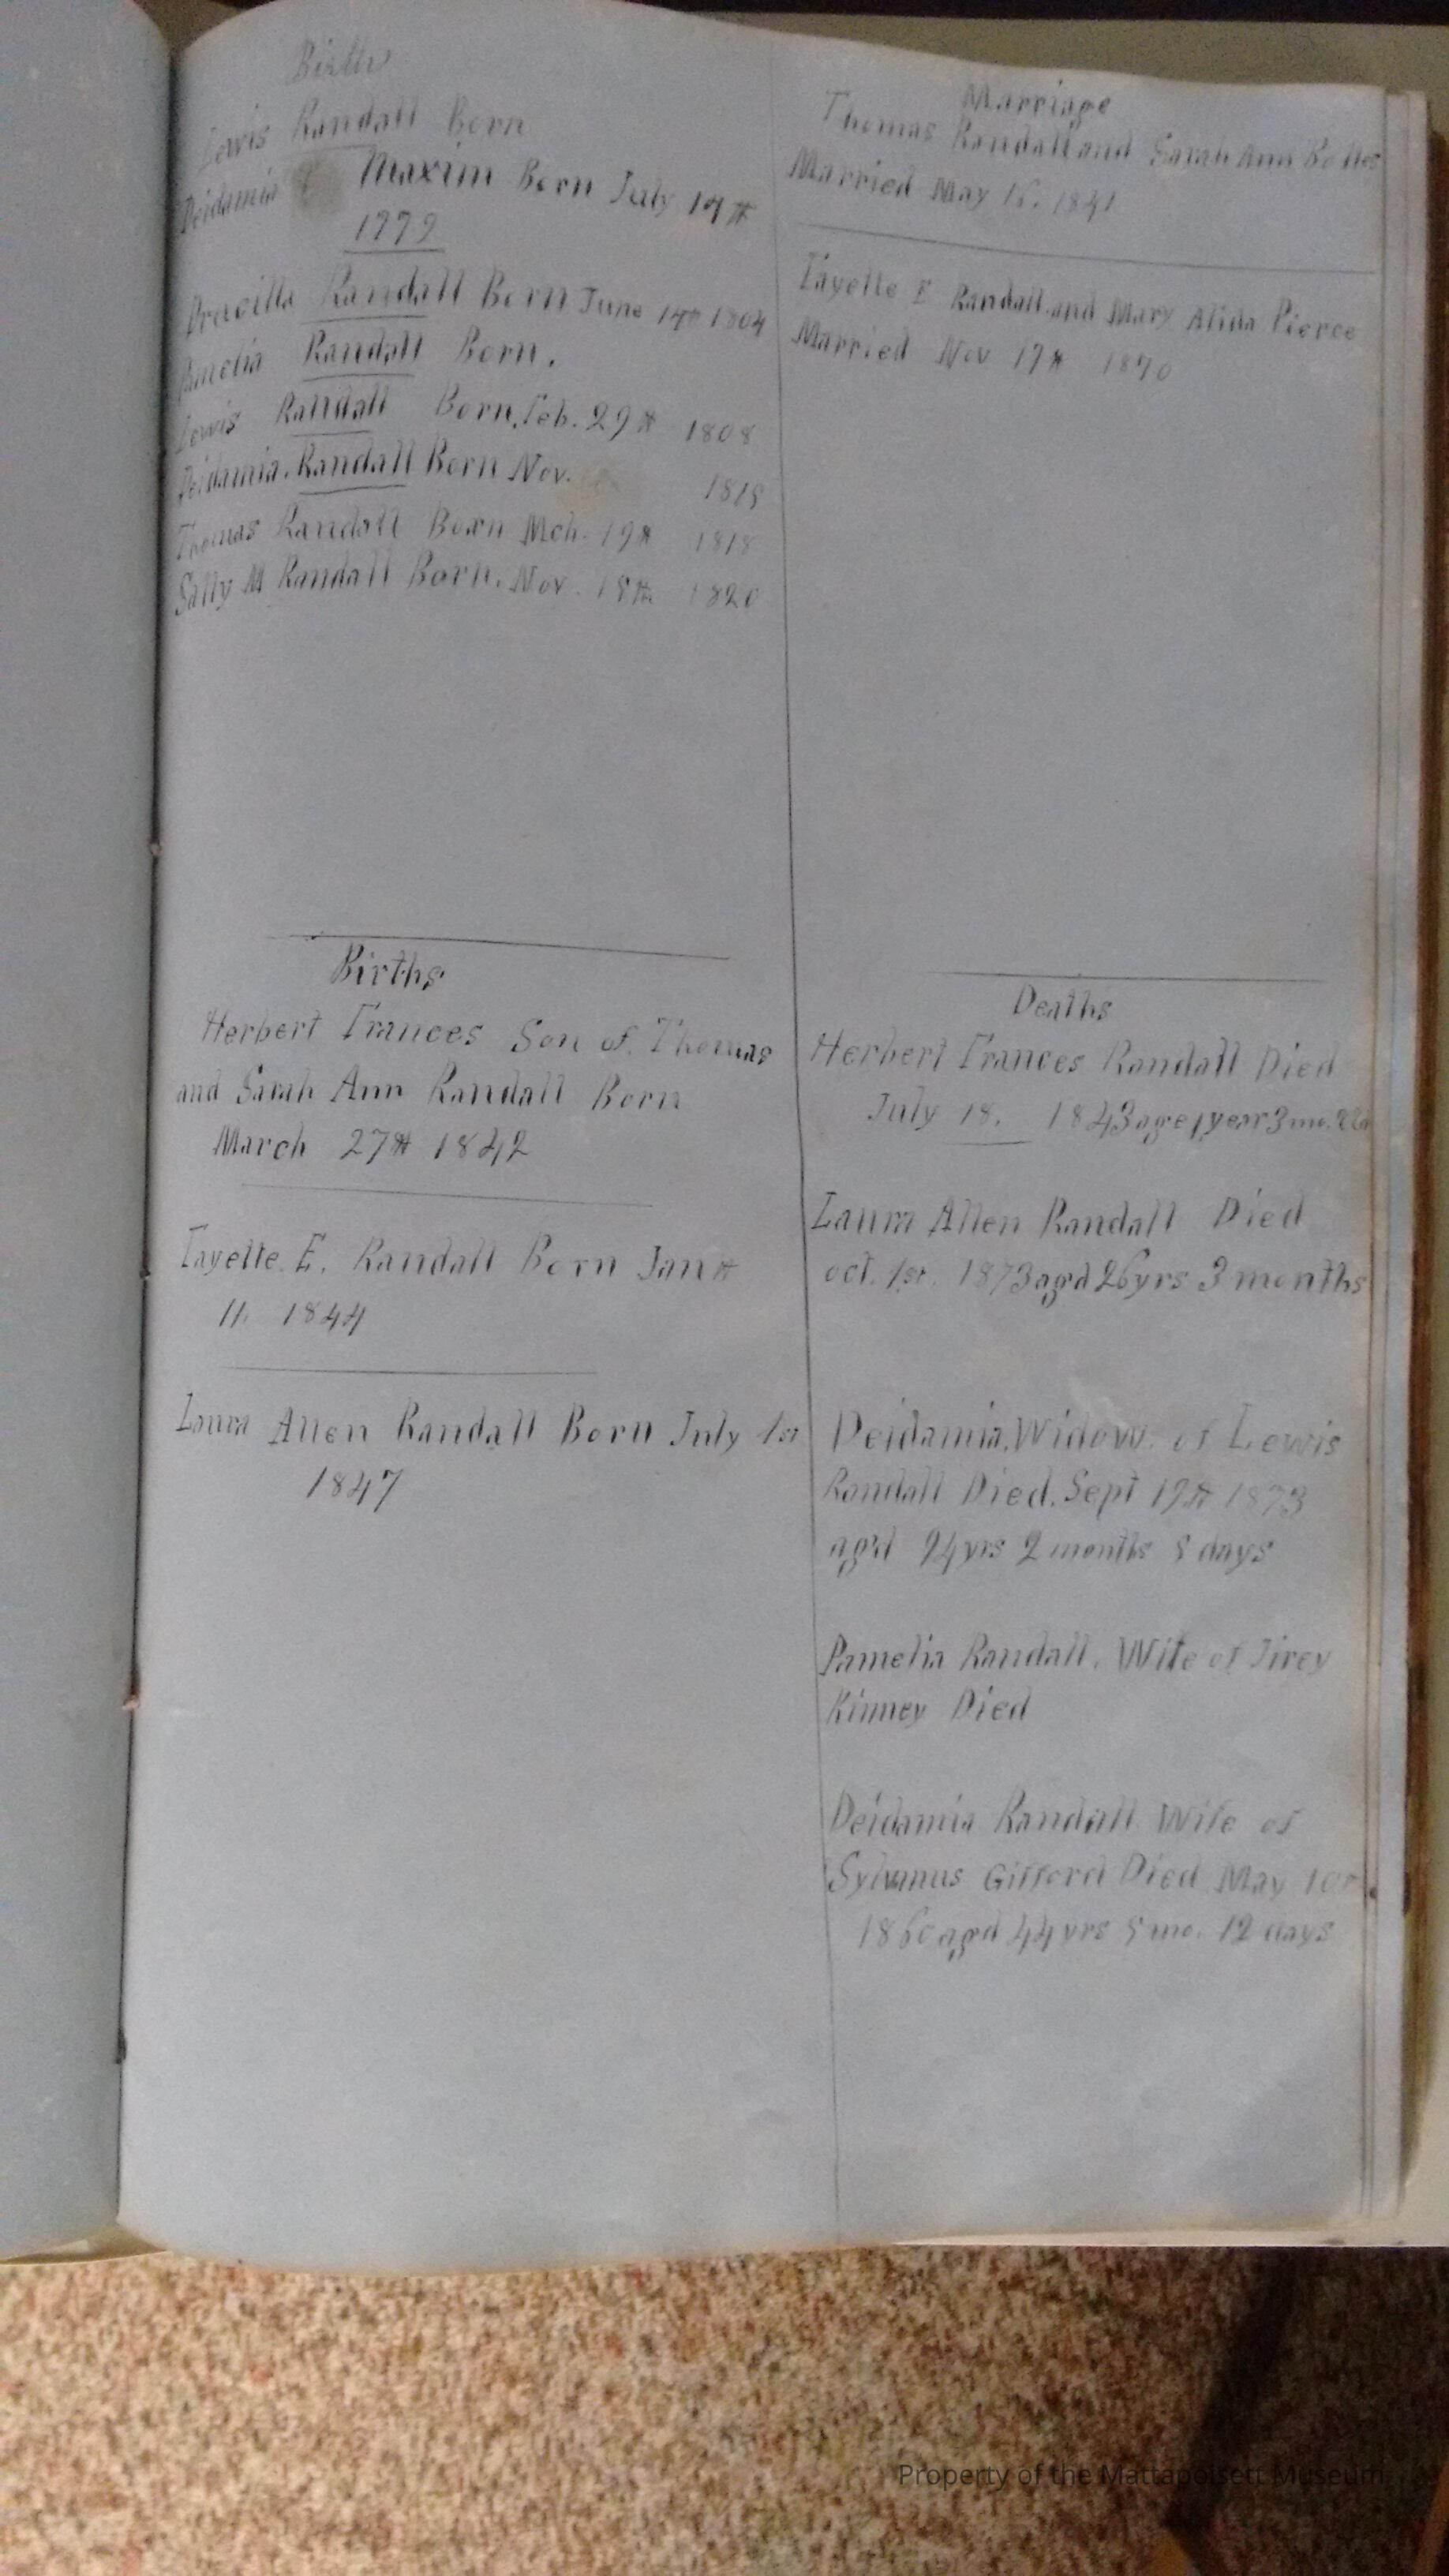 Birth
Lewis Randall Born
Deidamia Maxim Born July 14th
1779
Drucilla Randall Born June 14th 1804
Pamelia Randall Born.
Lewis Randall Born, Feb. 29th 1808
Deidamia. Randall Born Nov.
Thomas Randall Born Mch. 19th 1818
Sally M Randall Born. Nov. 18th 1820
Marriage
Thomas Randall and Sarah Ann Bolles
Married May 16, 1841
Fayette E Randall and Mary Alida Pierce
Married Nov 17th 1870
Births
Herbert Frances Son of Thomas
and Sarah Ann Randall Born
March 27th 1842
Fayette E. Randall Born Jan th
11 1844
Laura Allen Randall Born July 1st
1847
Deaths
Herbert Frances Randall Died
July 18. 1843 age 1 year 3 mo.
Laura Allen Randall Died
oct. 1st. 1873 agd 26 yrs 3 months
Deidamia. Widow. of Lewis
Randall Died. Sept 19th 1873
agd 94 yrs 2 months 5 days
Pamelia Randall. Wife of Jirey
Kinney Died
Deidamia Randall Wife of
Sylvanus Gifford Died May
1860 agd 44 yrs 5 mo. 12 days
Property of the Mattapoisett Museum